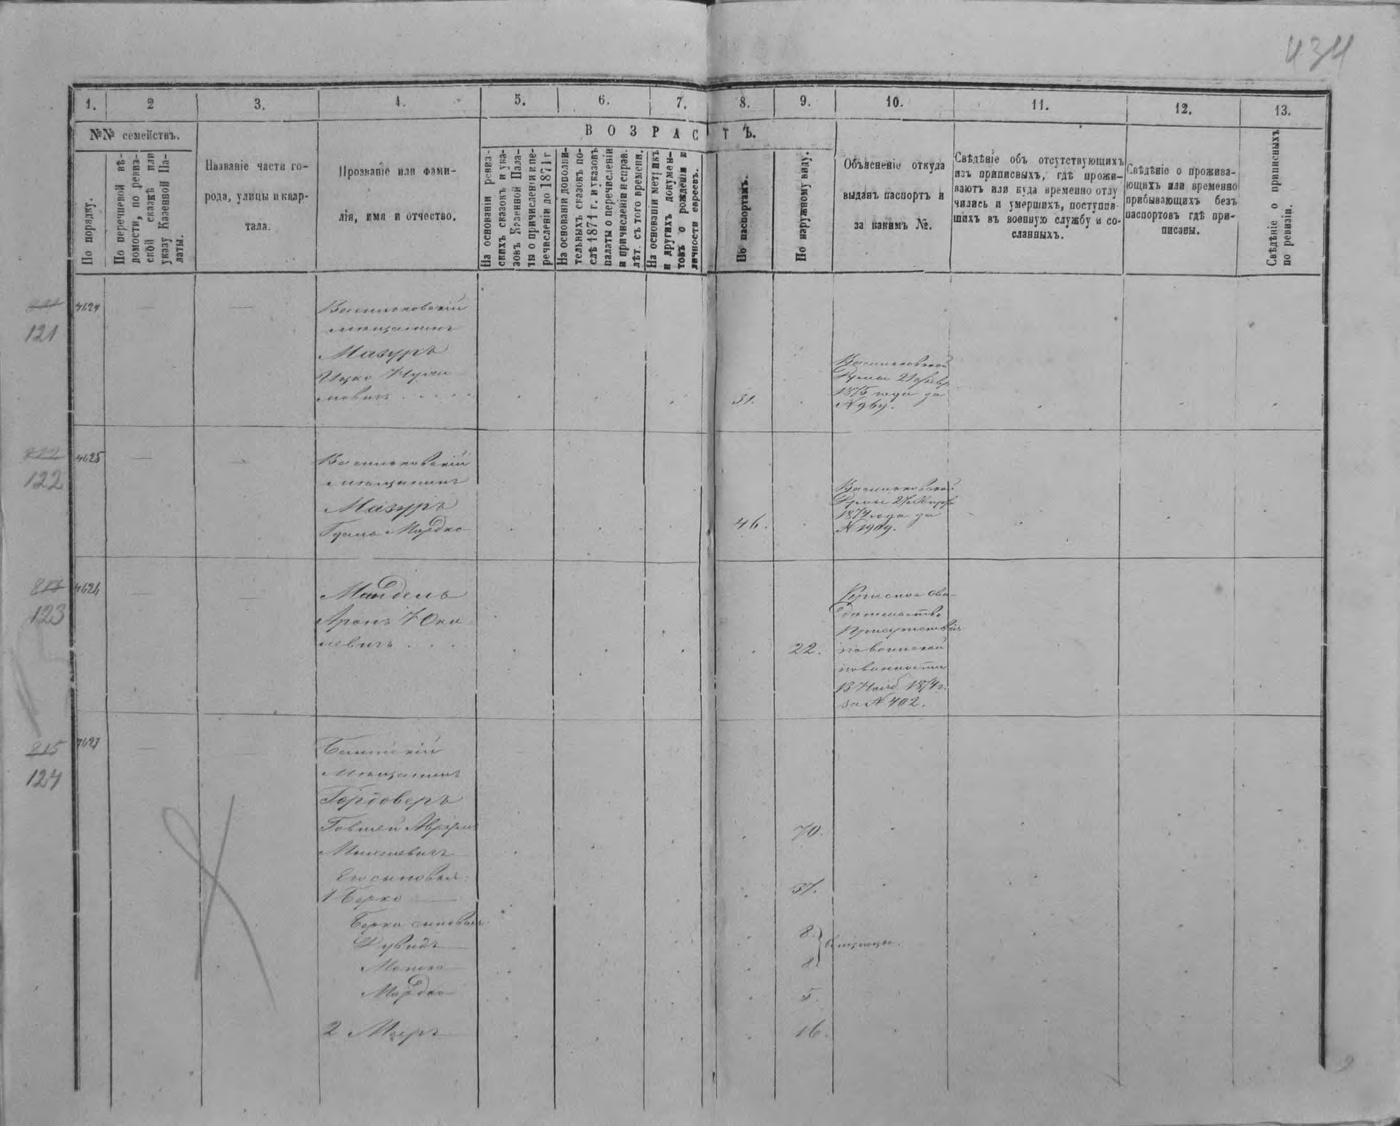 434
1.
2
3.
4.
5.
6.
7.
8.
9.
10.
11.
12.
13.
№№ семействъ.
По порядку.
По перечневой вѣ-
домости, по ревиз-
ской сказкѣ или
указу Казенной Па-
латы.
Названіе части го-
рода, улицы и квар-
тала.
Прозваніе или фами-
лія, имя и отчество.
ВОЗРАСТЪ.
На основаніи ревиз-
скихъ сказокъ и ука-
зовъ Казенной Пала-
ты о причисленіи и пе-
речисленіи до 1871 г
На основаніи дополни-
тельныхъ сказокъ по-
слѣ 1871 г. и указовъ
палаты о перечисленіи
и причисленіи и справ.
лѣт. съ того времени.
На основаніи метрикъ
и другихъ докумен-
товъ о рожденіи и
личности евреевъ.
По паспортамъ.
По наружному виду.
Объясненіе откуда
выданъ паспортъ и
за какимъ №.
Свѣдѣніе объ отсутствующихъ
изъ приписныхъ, гдѣ прожи-
ваютъ или куда временно отлу
чились и умершихъ, поступив-
шихъ въ военную службу и со-
сланныхъ.
Свѣдѣніе о прожива-
ющихъ или временно
прибывающихъ безъ
паспортовъ гдѣ при-
писаны.
Свѣдѣніе о приписныхъ
по ревизіи.
121
4624
Васильковскій
мѣщанинъ
Мазуръ
Ицко
51.
Васильковской
Думы
1875 года за
№ 969.
122
4625
Васильковскій
мѣщанинъ
Мазуръ
Мордко
46.
Васильковской
Думы
1874 года за
№ 1909.
123
4626
Мандель
Аронъ
22.
Присутствія
по воинской
повинности
1874 г.
за № 402.
215
124
4627
мѣщанинъ
Гордоверъ
70.
Его сыновья:
1 Берко
37.
Берки сыновья
Дувидъ
8.
близнецы.
8.
Мордко
5.
2 Мееръ
16.